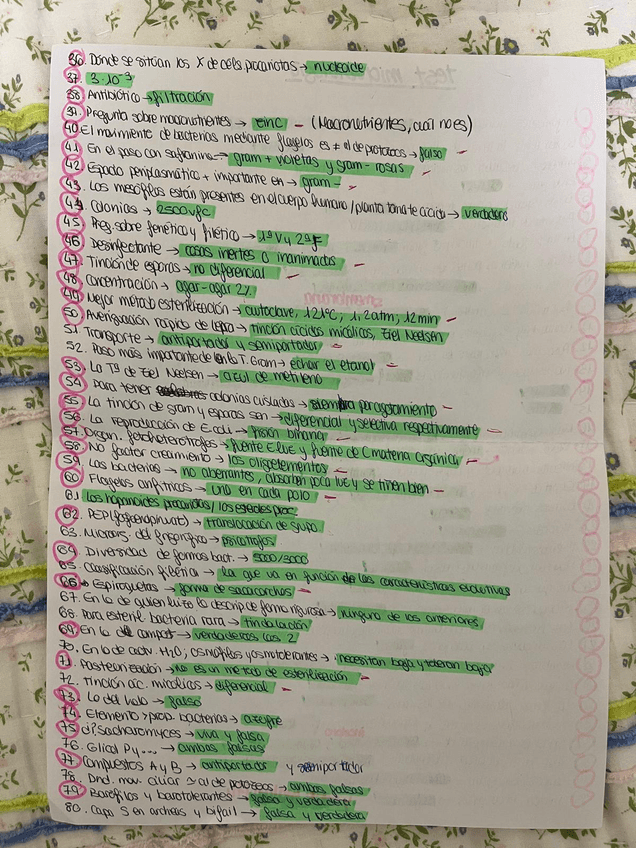 36. Dónde se sitúan los X de céls. procariotas → nucleoide
37. 3·10⁻³
38. Antibiótico → filtración
39. Pregunta sobre macronutrientes → cinc – (Macronutrientes, cuál no es)
40. El movimiento de bacterias mediante flagelos es ≠ al de protozoos → falso
41. En el paso con safranina → gram + violetas y gram - rosas
42. Espacio periplasmático + importante en → gram -
43. Los mesófilos están presentes en el cuerpo humano / planta tomate → verdadero
44. Colonias → 2500 vfc
45. Preg. sobre fenético y filético → 1ª V y 2ª F
46. Desinfectante → cosas inertes o inanimadas
47. Tinción de esporas → no diferencial
48. Concentración → agar-agar 2%
49. Mejor método esterilización → autoclave, 121ºC, 1,2 atm, 12 min
50. Averiguación rápida de lepra → tinción ácidos micólicos, Ziel Neelsen
51. Transporte → antiportador y semiportador
52. Paso más importante de la T. Gram → echar el etanol
53. La Tª de Ziel Neelsen → azul de metileno
54. Para tener colonias aisladas → siembra por agotamiento
55. La tinción de gram y esporas son → diferencial y selectiva respectivamente
56. La reproducción de E.coli → fisión binaria
57. Organ. fotoheterótrofos → fuente E luz y fuente de C materia orgánica
58. No factor crecimiento → los oligoelementos
59. Las bacterias → no aberrantes, absorben poca luz y se tiñen bien
60. Flagelos anfítricos → uno en cada polo
61. los hopanoides procariotas / los esteroles
62. PEP (fosfoenolpiruvato) → translocación de grupo
63. Microorg. del frigorífico → psicrótrofos
64. Diversidad de formas bact. → 5000/3000
65. Clasificación filética → la que va en función de las características evolutivas
66. Espiroquetas → forma de sacacorchos
67. En la de quien hizo la descrip de forma rigurosa → ninguna de las anteriores
68. Para esteril. bacteria rara → tindalización
69. En lo de compost → verdaderas las 2
70. En lo de activ. H₂O; osmófilos y osmotolerantes → necesitan baja y toleran baja
71. Pasteurización → no es un método de esterilización
72. Tinción ác. micólicos → diferencial
73. Lo del → falso
74. Elemento + prop. bacterias → azufre
75. d? sacharomyces → viva y falsa
76. Glicol Py.... → ambas falsas
77. Compuestos A y B → antiportador y semiportador
78. Dnd. mov. ciliar ≃ al de protozoos → ambas falsas
79. Barófilos y barotolerantes → falsa y verdadera
80. Capa S en archeas y bifail → falsa y verdadera